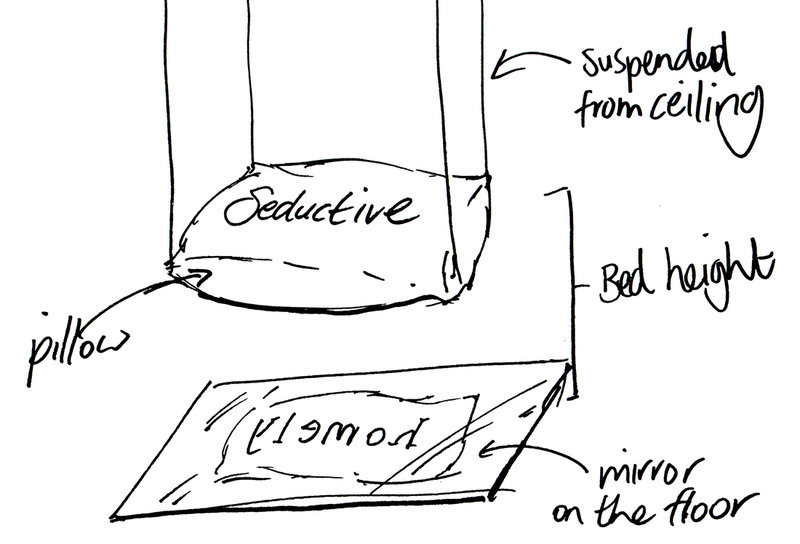 suspended
from ceiling
Seductive
Bed height
pillow
homely
mirror
on the floor